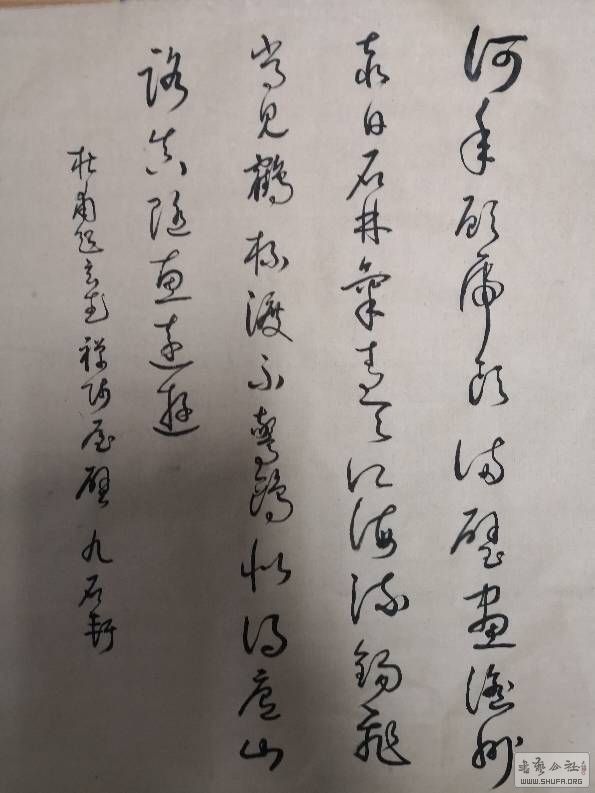 何年顧虎頭滿壁畫滄州
赤日石林氣青天江海流錫飛
常見鶴杯渡不驚鷗似得廬山
路真隨惠遠遊
杜甫題玄武禪師屋壁 九石軒
书艺公社
WWW.SHUFA.ORG